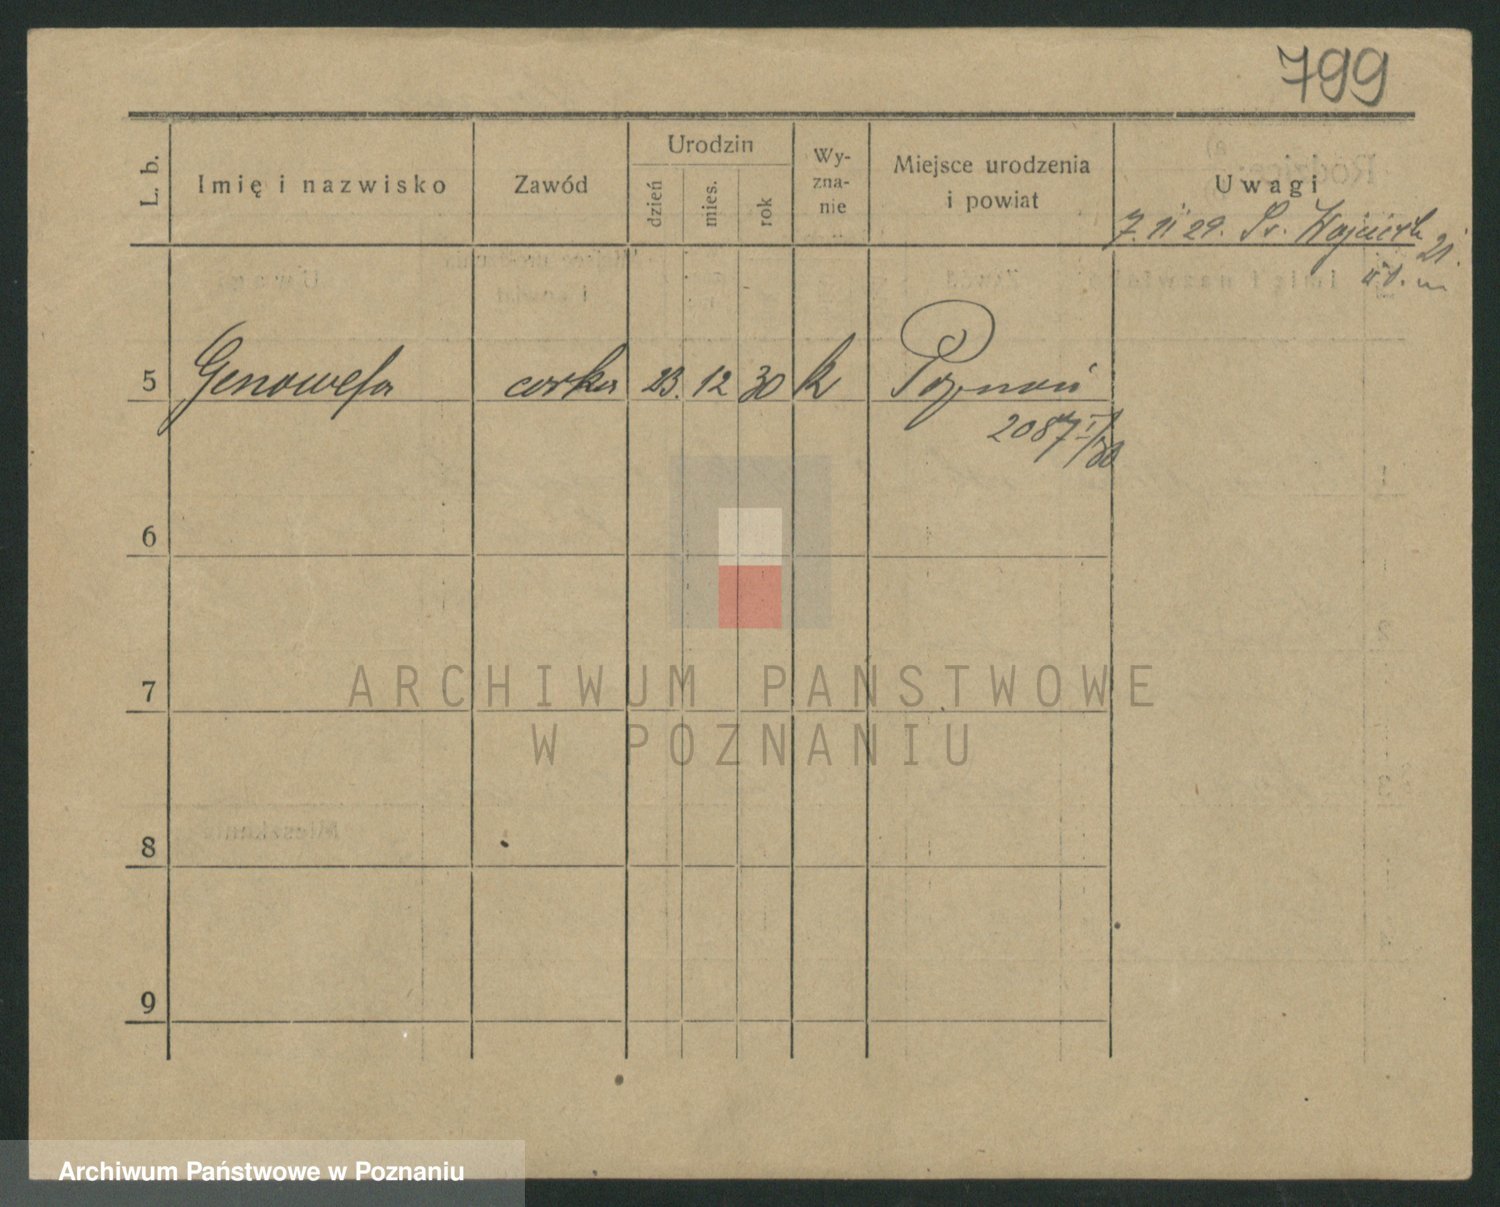 799
L. b. Imię i nazwisko Zawód Urodzin dzień mies. rok Wy-zna-nie Miejsce urodzenia i powiat Uwagi
7. 11 29. Św. Wojciech 21.
5 Genowefa corka 23. 12 30 k Poznań
2087
6
7
ARCHIWUM PAŃSTWOWE
W POZNANIU
8
9
Archiwum Państwowe w Poznaniu